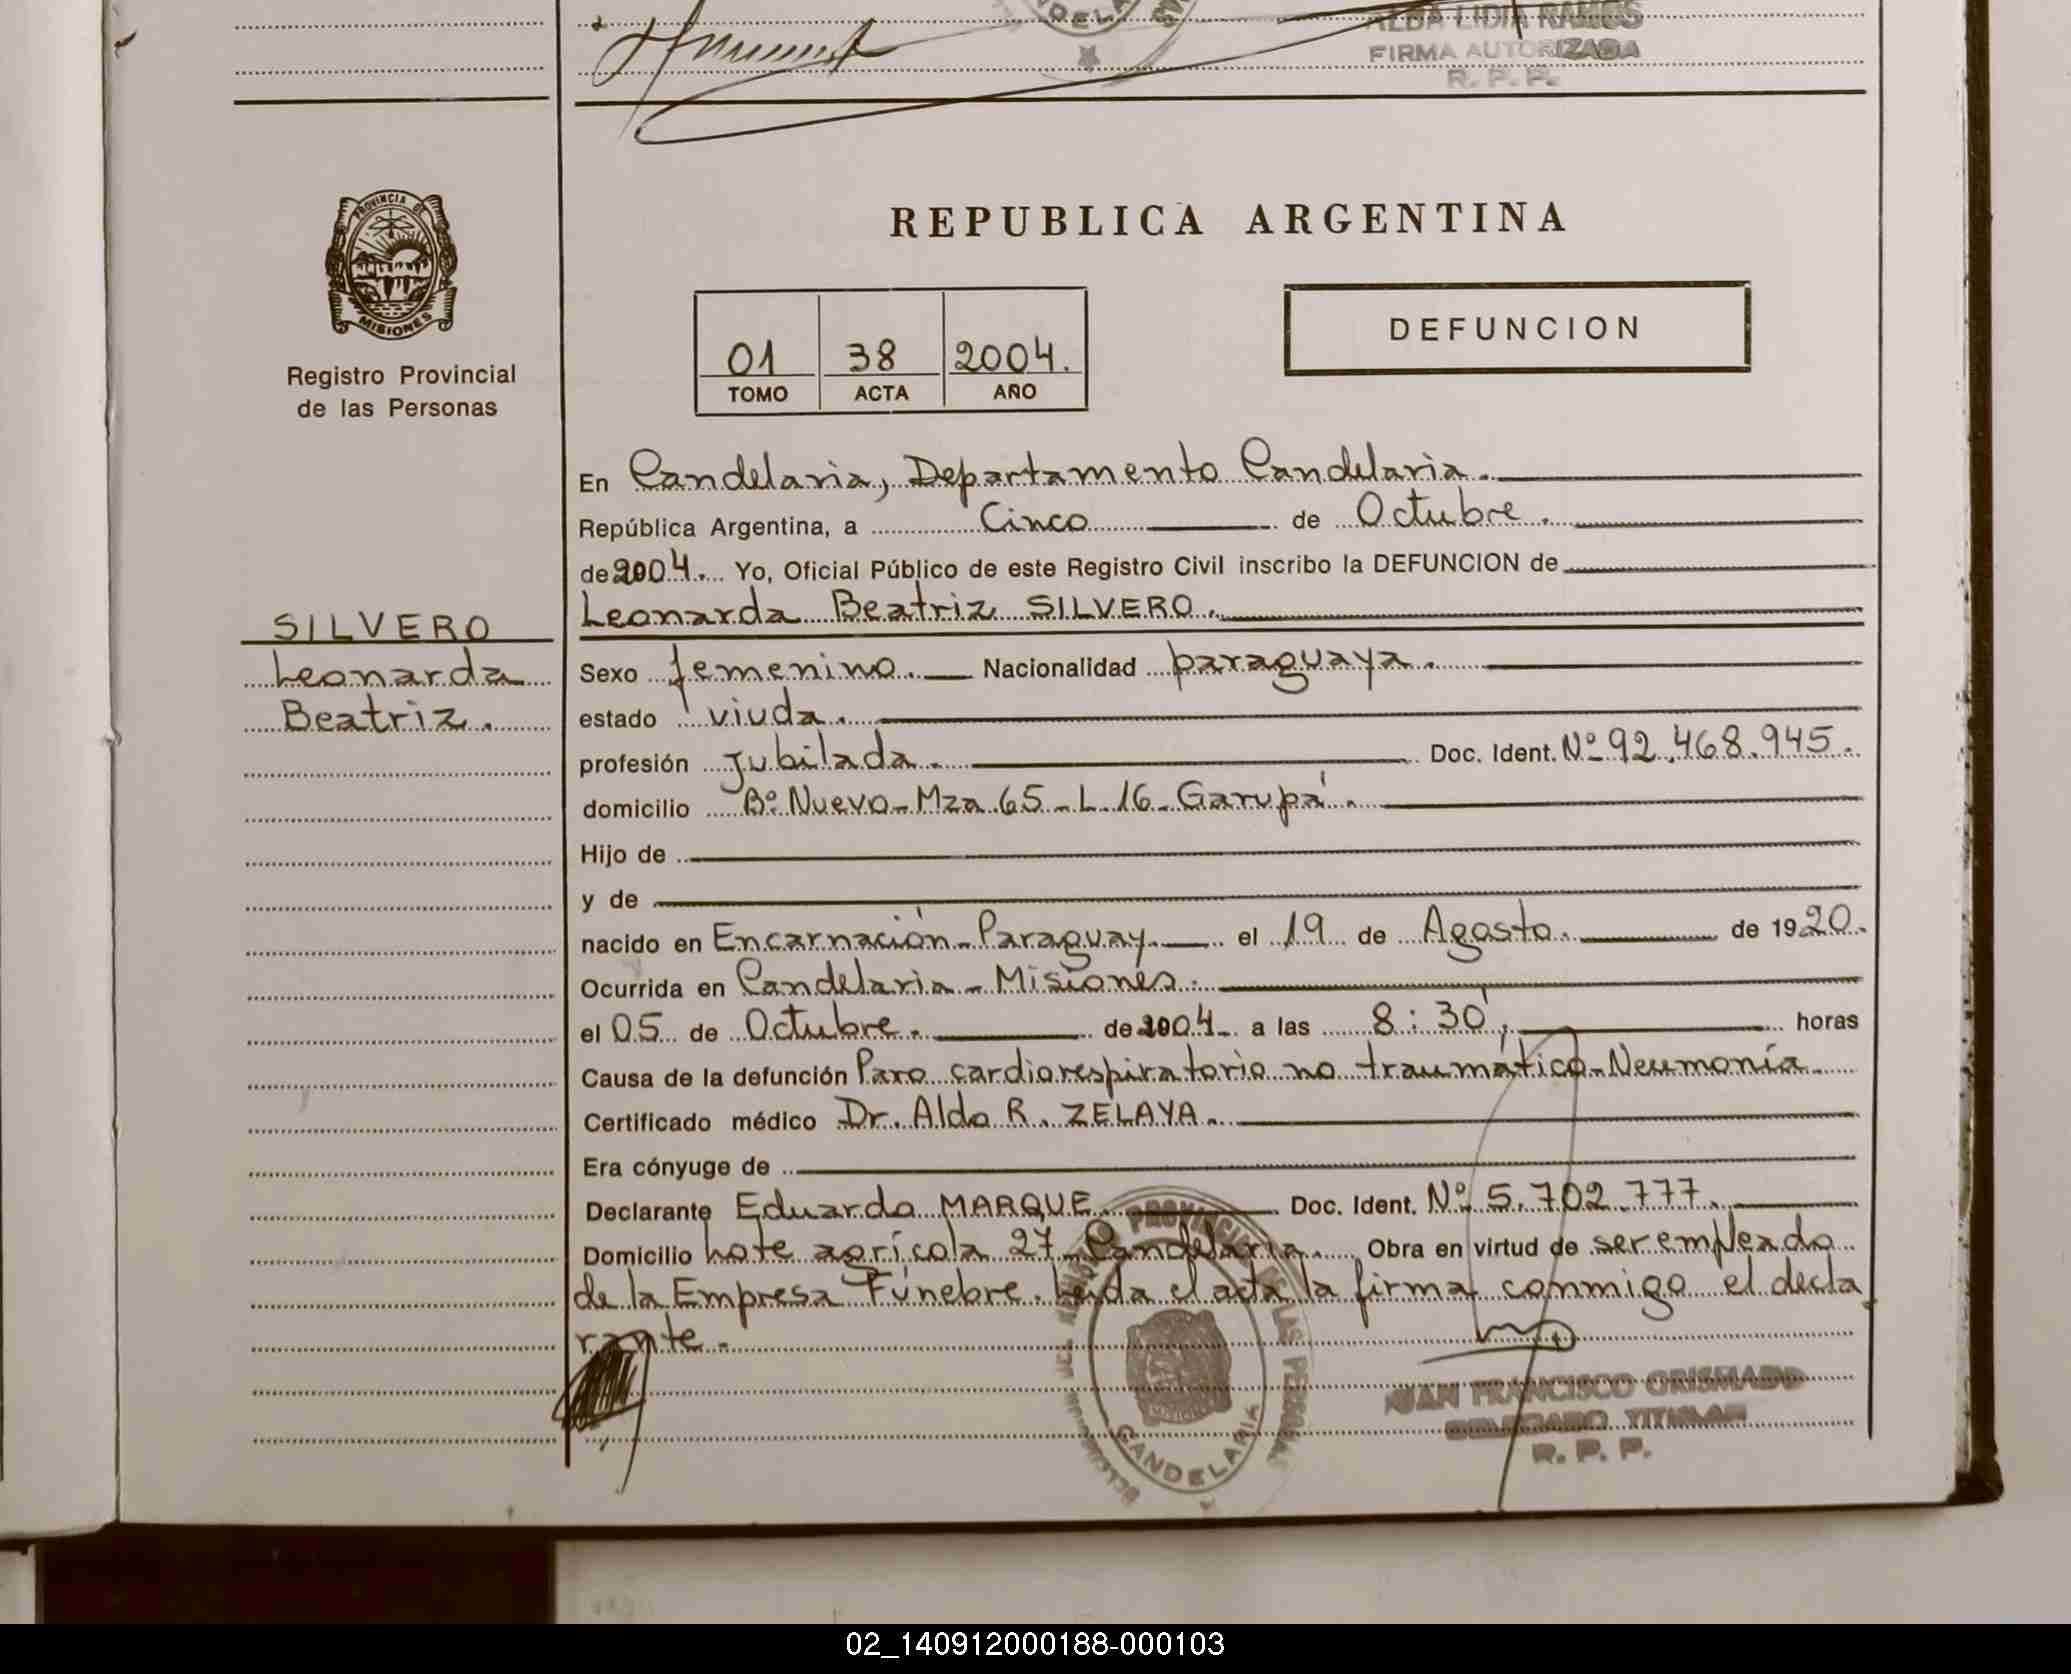 ALBA LIDIA RAMOS
FIRMA AUTORIZADA
R. P. P.
PROVINCIA DE
MISIONES
Registro Provincial
de las Personas
REPUBLICA ARGENTINA
01 38 2004.
TOMO ACTA AÑO
DEFUNCION
En Candelaria, Departamento Candelaria.
República Argentina, a Cinco de Octubre.
de 2004. Yo, Oficial Público de este Registro Civil inscribo la DEFUNCION de
Leonarda Beatriz SILVERO.
SILVERO
Leonarda
Beatriz.
Sexo femenino. Nacionalidad paraguaya.
estado viuda.
profesión Jubilada. Doc. Ident. Nº 92.468.945.
domicilio Bº Nuevo - Mza 65 - L 16 - Garupá.
Hijo de
y de
nacido en Encarnación - Paraguay. el 19 de Agosto. de 1920.
Ocurrida en Candelaria - Misiones.
el 05 de Octubre. de 2004. a las 8:30', horas
Causa de la defunción Paro cardiorespiratorio no traumático - Neumonía.
Certificado médico Dr. Aldo R. ZELAYA.
Era cónyuge de
Declarante Eduardo MARQUE. Doc. Ident. Nº 5.702.777.
Domicilio Lote agrícola 27 - Candelaria. Obra en virtud de ser empleado
de la Empresa Fúnebre. Leída el acta la firma conmigo el decla
rante.
CANDELARIA
JUAN FRANCISCO GRISMADO
DELEGADO TITULAR
R. P. P.
02_140912000188-000103